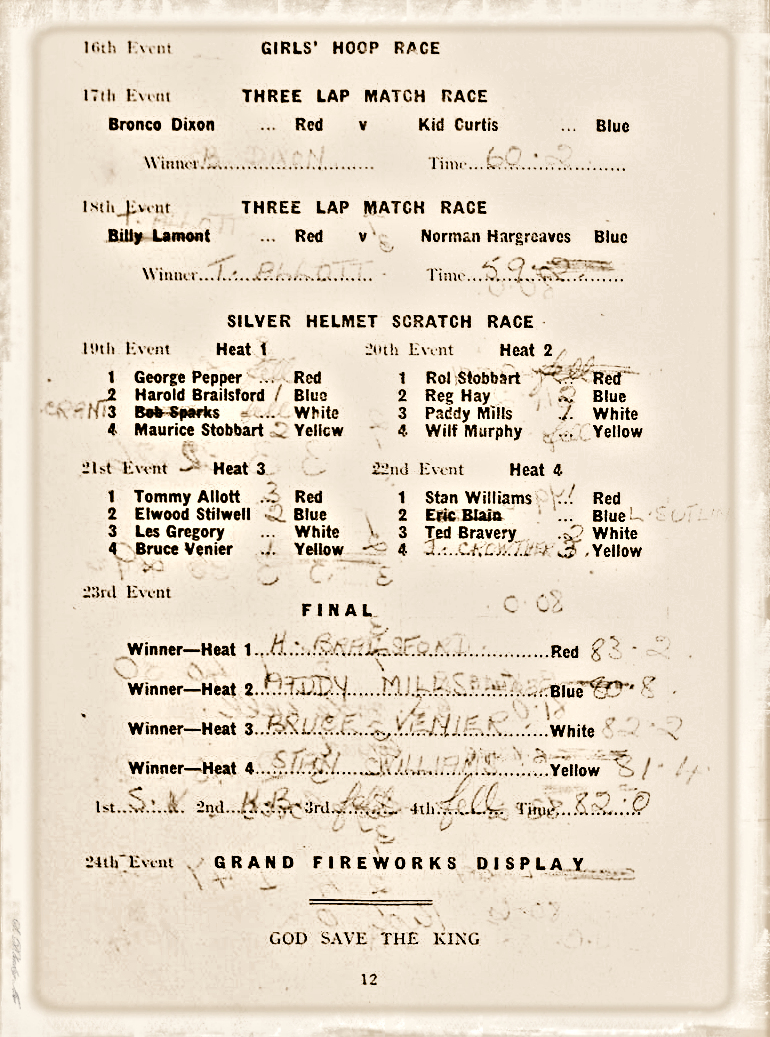 16th Event GIRLS' HOOP RACE
17th Event THREE LAP MATCH RACE
Bronco Dixon ... Red v Kid Curtis ... Blue
Winner B. DIXON Time 60.2
18th Event THREE LAP MATCH RACE
T. ALLOTT
Billy Lamont ... Red v Norman Hargreaves Blue
Winner T. ALLOTT Time 59.
SILVER HELMET SCRATCH RACE
19th Event Heat 1 20th Event Heat 2
1 George Pepper ... Red 1 Rol Stobbart ... Red
2 Harold Brailsford 1 Blue 2 Reg Hay 2 Blue
3 Bob Sparks ... White 3 Paddy Mills 1 White
4 Maurice Stobbart 2 Yellow 4 Wilf Murphy Yellow
21st Event Heat 3 22nd Event Heat 4
1 Tommy Allott 3 Red 1 Stan Williams 1 Red
2 Elwood Stilwell 2 Blue 2 Eric Blain ... Blue
3 Les Gregory ... White 3 Ted Bravery 2 White
4 Bruce Venier 1 Yellow 4 J. CROWTHER 3 Yellow
23rd Event
FINAL
Winner—Heat 1 H. BRAILSFORD Red 83.2
Winner—Heat 2 PADDY MILLS Blue 80.8
Winner—Heat 3 BRUCE VENIER White 82.2
Winner—Heat 4 STAN WILLIAMS Yellow 81.4
1st S.W. 2nd H.B. 3rd fell 4th fell Time 82.0
24th Event GRAND FIREWORKS DISPLAY
GOD SAVE THE KING
12